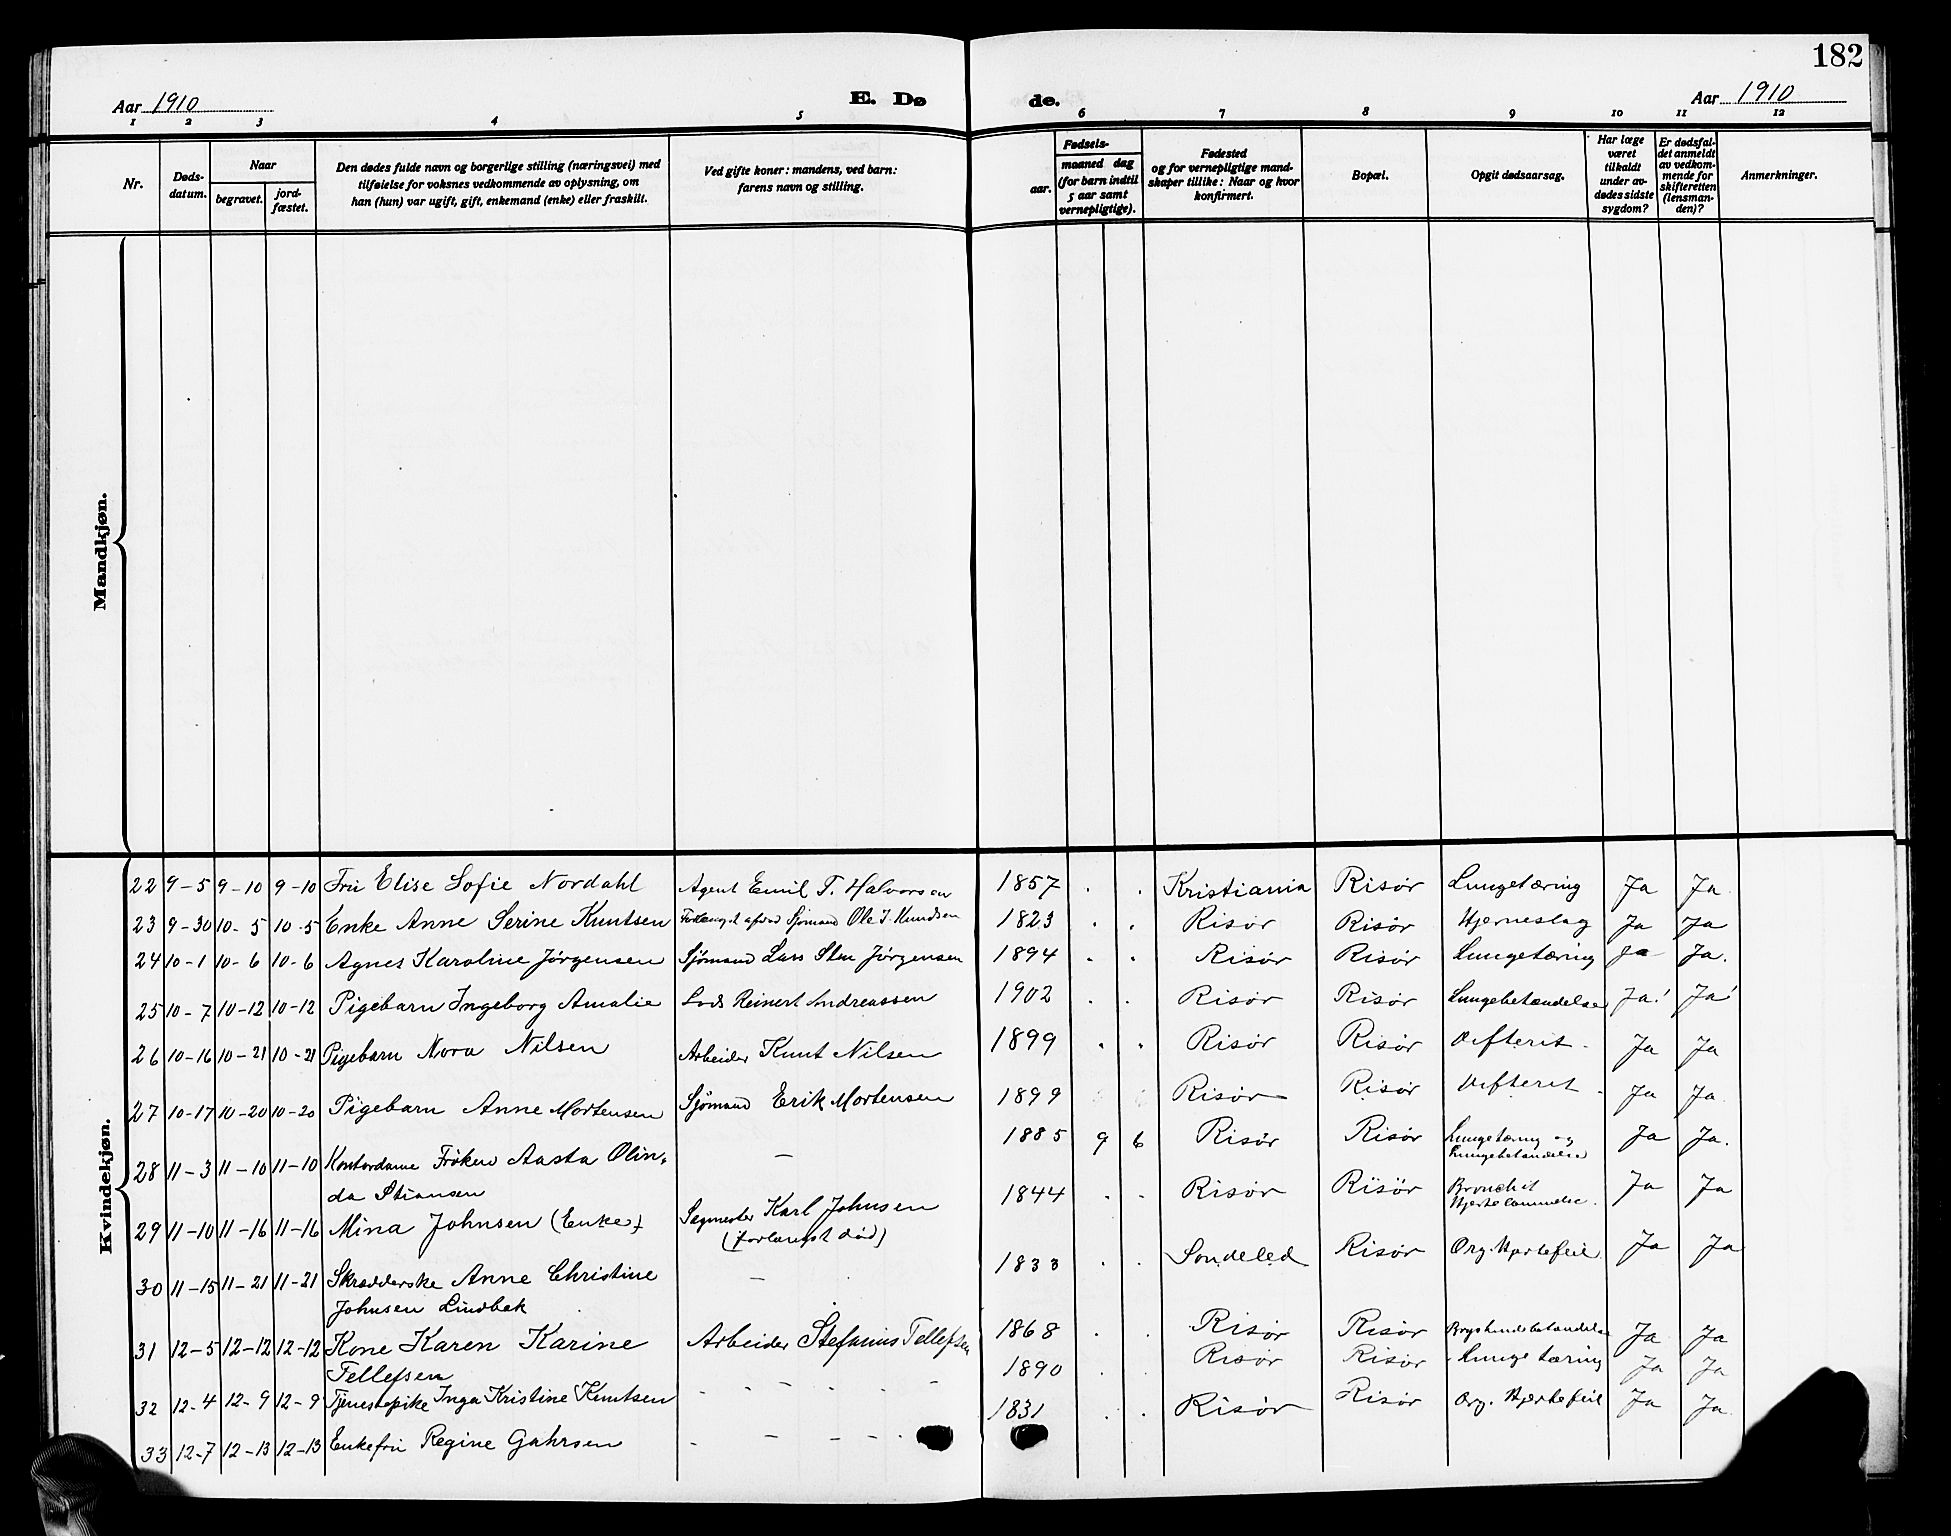 182
Aar 1910 E. Dø de. Aar 1910
1 2 3 4 5 6 7 8 9 10 11 12
Nr.
Døds-
datum.
Naar
begravet.
jord-
fæstet.
Den dødes fulde navn og borgerlige stilling (næringsvei) med
tilføielse for voksnes vedkommende av oplysning, om
han (hun) var ugift, gift, enkemand (enke) eller fraskilt.
Ved gifte koner: mandens, ved barn:
farens navn og stilling.
Fødsels-
aar.
maaned dag
(for barn indtil
5 aar samt
vernepligtige).
Fødested
og for vernepligtige mand-
skaper tillike: Naar og hvor
konfirmert.
Bopæl.
Opgit dødsaarsag.
Har læge
været
tilkaldt
under av-
dødes sidste
sygdom?
Er dødsfal-
det anmeldt
av vedkom-
mende for
skifteretten
(lensman-
den)?
Anmerkninger.
Mandkjøn.
Kvindekjøn.
22 9-5 9-10 9-10 Fru Elise Sofie Nordahl Agent Emil T. Halvorsen 1857 . . Kristiania Risør Lungetæring Ja Ja
23 9-30 10-5 10-5 Enke Anne Serine Knutsen Forlængst afdød Sjömand Ole J. Knudsen 1823 . . Risør Risør Hjerneslag Ja Ja
24 10-1 10-6 10-6 Agnes Karoline Jørgensen Sjömand Lars Sten Jørgensen 1894 . . Risør Risør Lungetæring Ja Ja.
25 10-7 10-12 10-12 Pigebarn Ingeborg Amalie Lods Reinert Andreassen 1902 . . Risør Risør Lungebetændelse Ja! Ja!
26 10-16 10-21 10-21 Pigebarn Nora Nilsen Arbeider Knut Nilsen 1899 . . Risør Risør Difterit. Ja Ja
27 10-17 10-20 10-20 Pigebarn Anne Mortensen Sjömand Erik Mortensen 1899 Risør Risør Difterit. Ja Ja
28 11-3 11-10 11-10 Kontordame Frøken Aasta Olin- — 1885 9 6 Risør Risør Lungetæring og Ja Ja.
da Stiansen Lungebetændelse
29 11-10 11-16 11-16 Mina Johnsen (Enke) Sagmester Karl Johnsen 1844 . . Risør Risör Bronchit Ja Ja
(forlængst död) Hjertelammelse.
30 11-15 11-21 11-21 Skrædderske Anne Christine — 1833 . . Søndeled Risør Org. Hjertefeil Ja Ja
Johnsen Lindbek
31 12-5 12-12 12-12 Kone Karen Karine Arbeider Stefanius Tellefsen 1868 . . Risør Risør Brysthindebetændelse Ja Ja
Tellefsen
32 12-4 12-9 12-9 Tjenestepike Inga Kristine Knutsen - - - - - 1890 . . Risør Risør Lungetæring Ja Ja
33 12-7 12-13 12-13 Enkefru Regine Gahrsen - - - - - 1831 . . Risør Risør Org. Hjertefeil Ja Ja